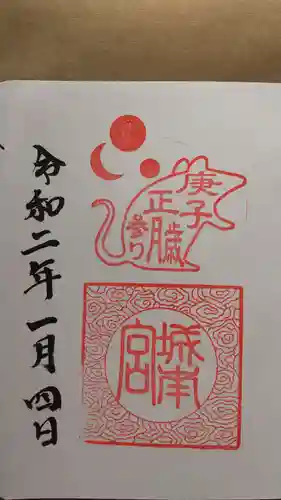 庚子
正月歳
参り
城南
宮
令和二年一月四日